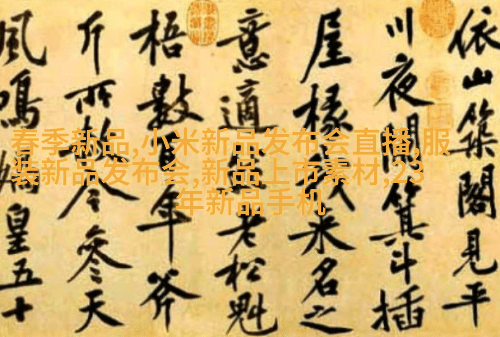 依山築閣見平
川夜闌箕斗插
屋椽我來名之
意適然老松魁
梧數百年斧
斤所赦今參天
風鳴媧皇五十
春季新品,小米新品发布会直播,服
装新品发布会,新品上市素材,23
年新品手机